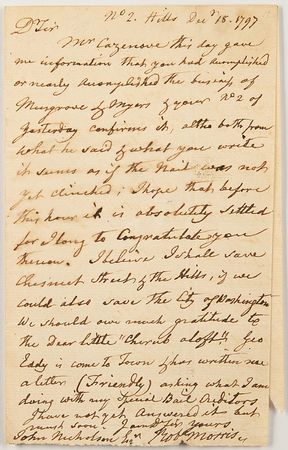 No 2. Hills Decr 18. 1797
Dr Sir
Mr Cazenove this day gave
me information that you had accomplished
or nearly accomplished the business of
Musgrove & Myers & your No 2 of
yesterday confirms it, altho both from
what he said & what you write
it seems as if the Nail was not
yet clinched; I hope that before
this hour it is absolutely settled
for I long to Congratulate you
thereon. I believe I shall save
Chesnut Street & the Hills, if we
could also save the City of Washington
We should owe much gratitude to
the Dear little "Cherub aloft"! Geo
Eddy is come to Town & has written me
a letter (Friendly) asking what I am
doing with my Special Bail Creditors
I have not yet Answered it but
must soon. I am Dr Sir yours
John Nicholson Esqr Robt Morris